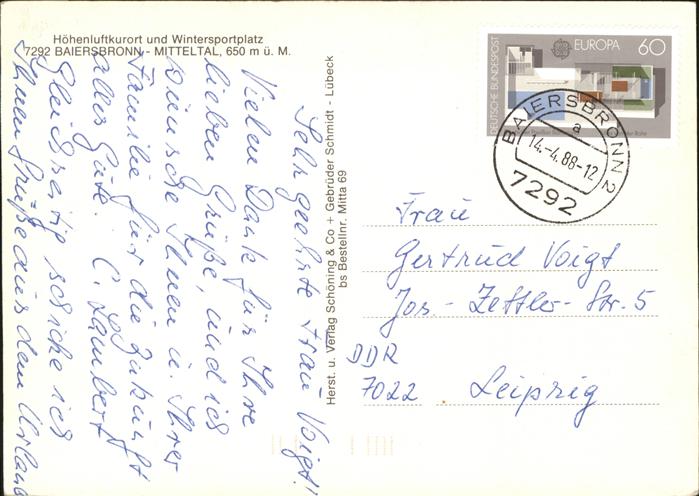 Höhenluftkurort und Wintersportplatz
7292 BAIERSBRONN - MITTELTAL, 650 m ü. M.
Sehr geehrte Frau Voigt!
Vielen Dank für Ihre
lieben Grüße, und ich
wünsche Ihnen u. Ihrer
Familie für die Zukunft
alles Gute. C. Lambert
Gleichzeitig schicke ich
Ihnen Grüße aus dem Urlaub
Herst. u. Verlag Schöning & Co + Gebrüder Schmidt - Lübeck
bs Bestellnr. Mitta 69
DEUTSCHE BUNDESPOST
EUROPA 60
BAIERSBRONN 2
a
14.-4.88-12
7292
Frau
Gertrud Voigt
Jos.-Zettler-Str. 5
DDR
7022 Leipzig